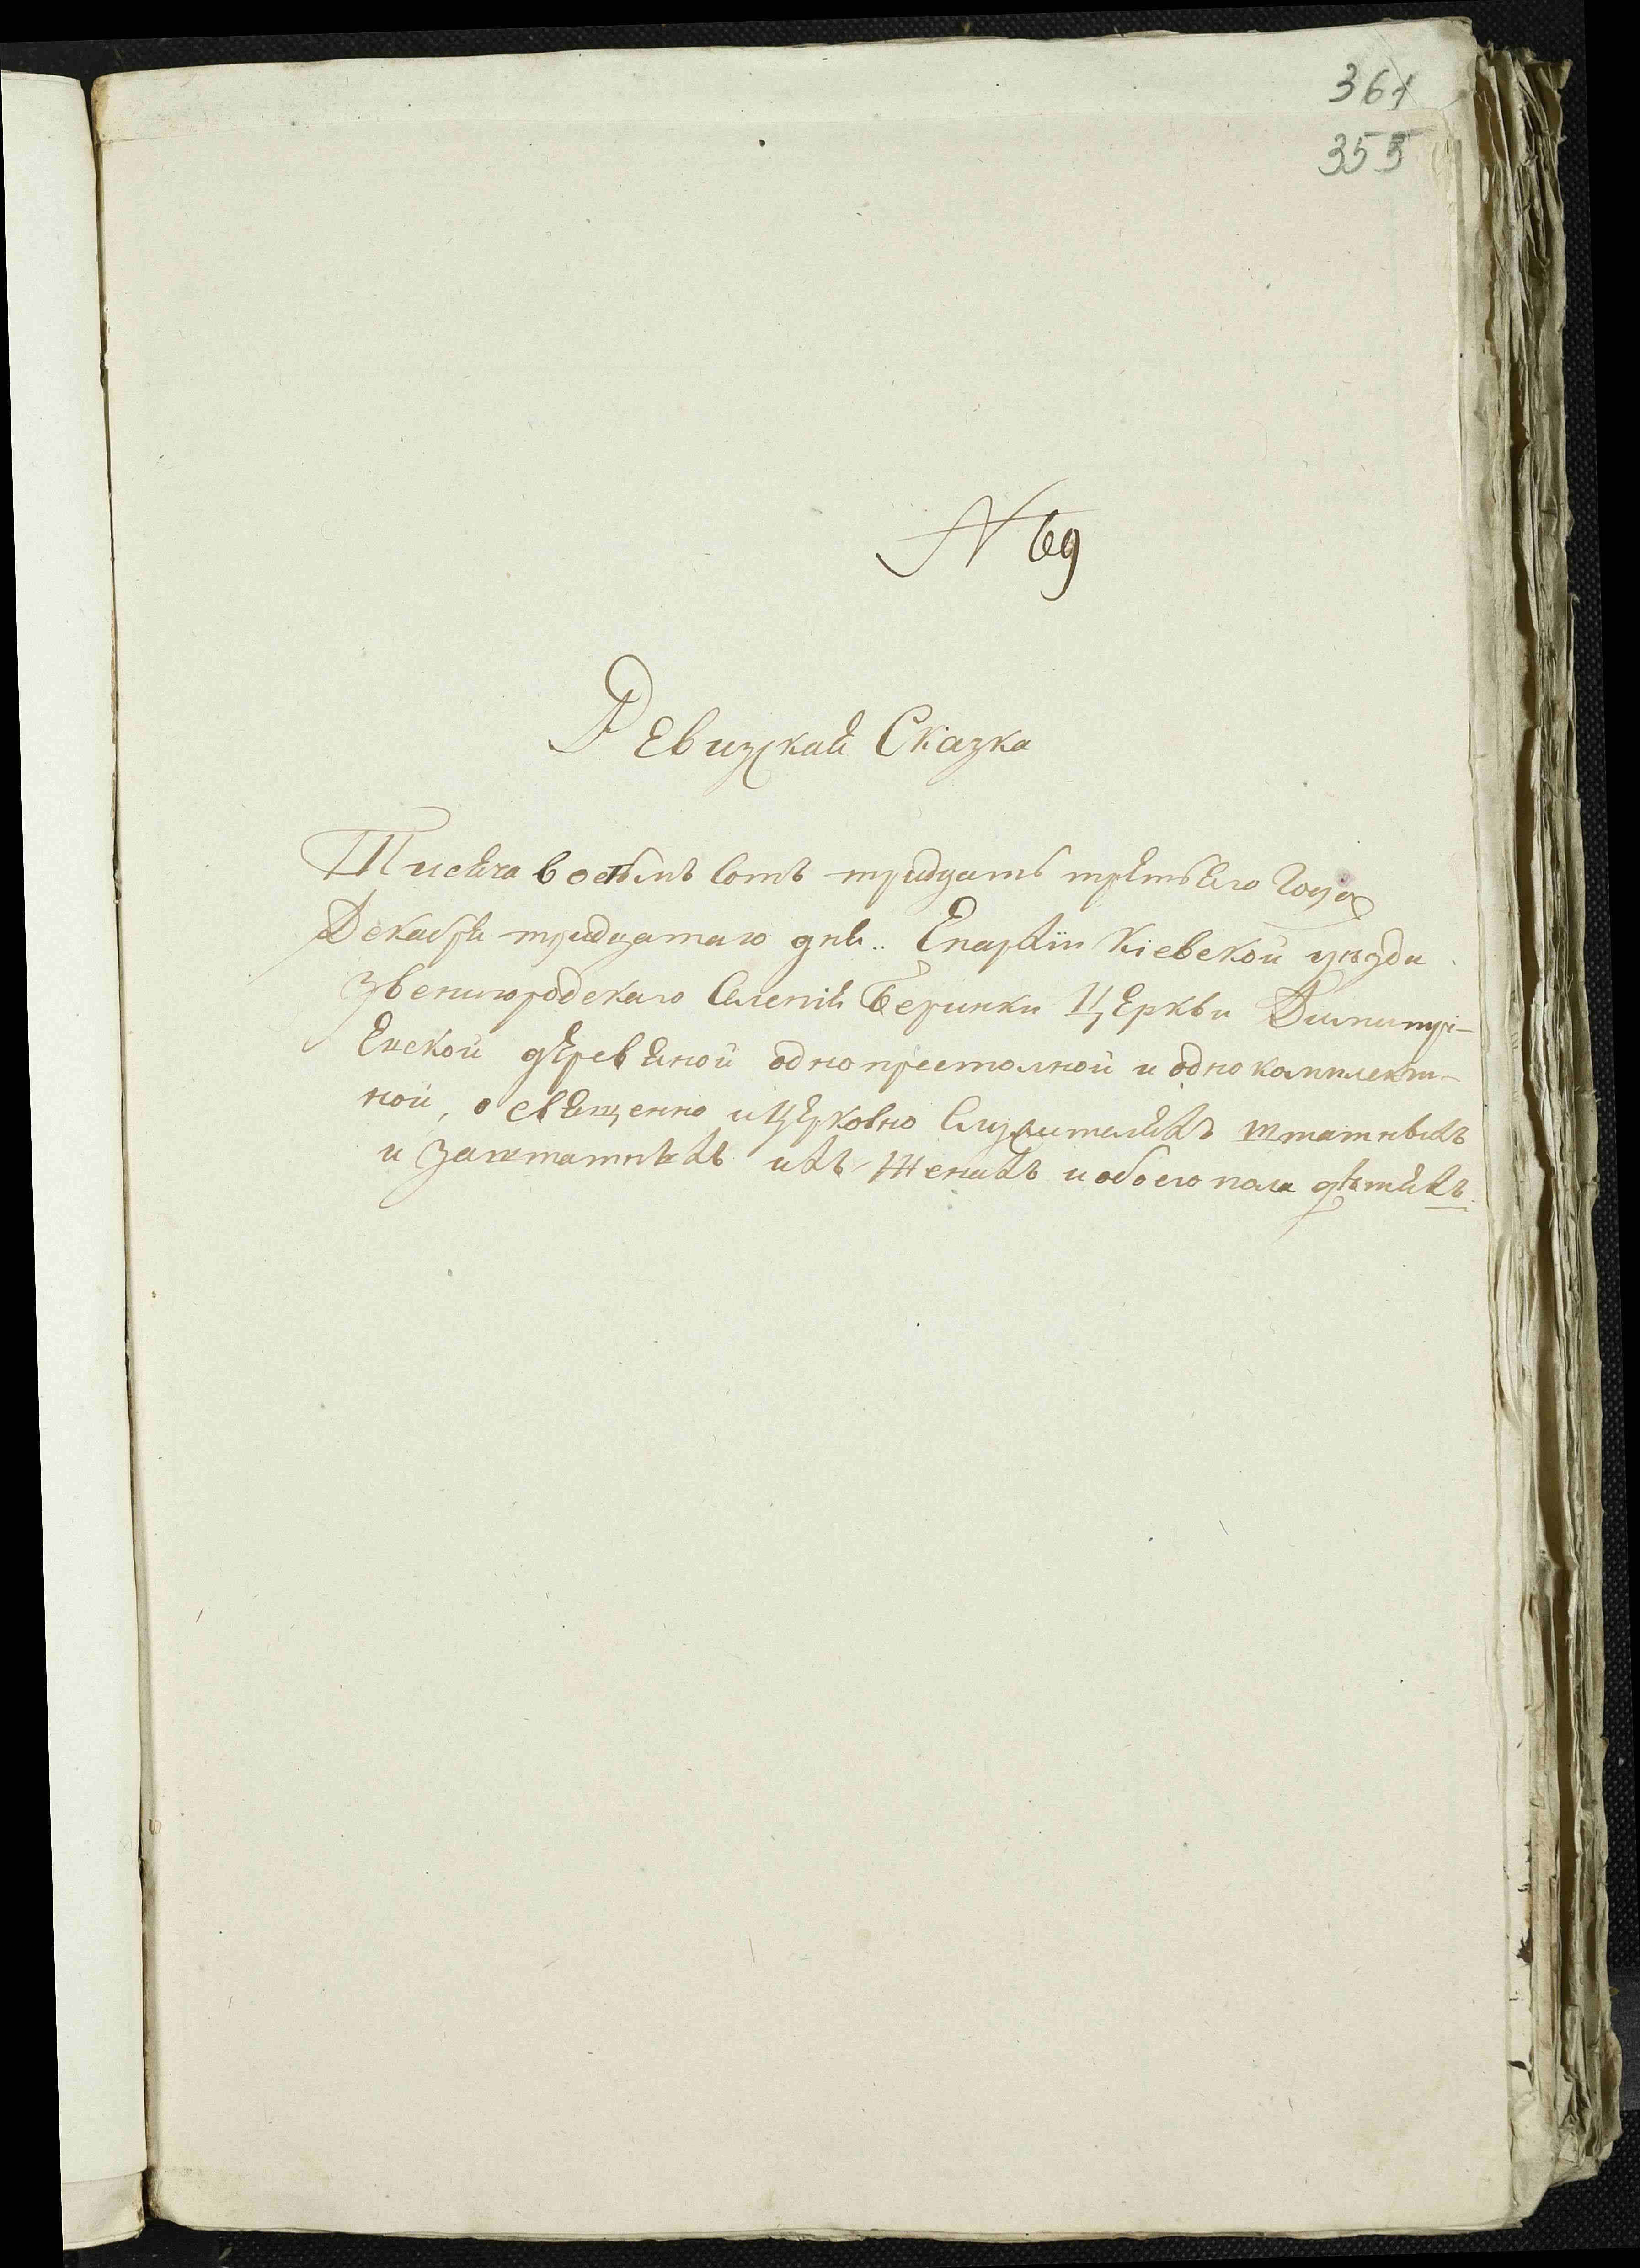 361
355
N 69
Ревизская Сказка
Тисяча восѣмъ сотъ тридцать третьяго Года
Декабря тридцатаго дня.. Епархіи Кіевской уѣзда
Звенигородскаго Селенія Беринки Церкви Димитрі-
Евской деревяной однопрестолной и однокомплект-
ной, о священно и Церковно Служителяхъ штатныхъ
и заштатнихъ ихъ Женахъ и обоего пола дѣтяхъ.